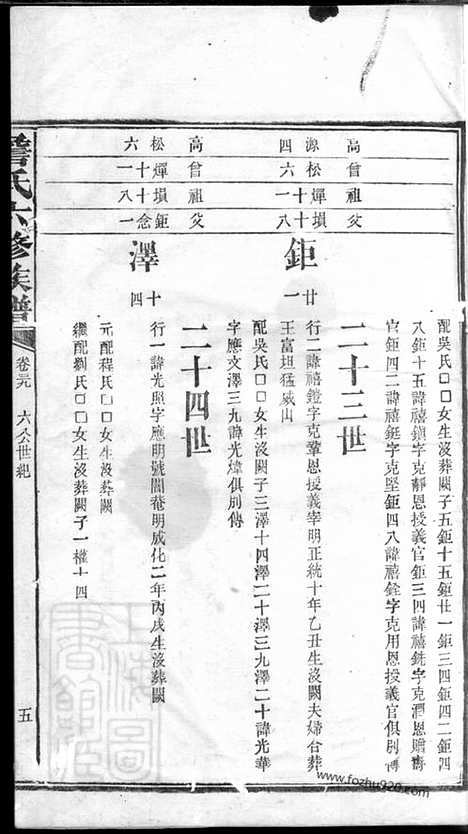 配吳氏□□女生沒闕子五鉅十五鉅廿一鉅三四鉅四二鉅四
八鉅十五諱禧鎭字克靜恩授義官鉅三四諱禧銑字克潤恩贈壽
官鉅四二諱禧鋌字克堅鉅四八諱禧銓字克用恩授義官俱別傳
二十三世
高 源四
曾 松六
祖 燀十一
父 塤十八
鉅廿一
行二諱禧鎧字克鞏恩授義宰明正統十年乙丑生沒闕夫婦合葬
王富坦猛威山
配吳氏□□女生沒闕子三澤十四澤二十澤三九澤二十諱光華
字應文澤三九諱光煒俱別傳
二十四世
高 松六
曾 燀十一
祖 塤十八
父 鉅念一
澤十四
行一諱光照字應明號闇菴明成化二年丙戌生沒葬闕
元配程氏□□女生沒葬闕
繼配劉氏□□女生沒葬闕子一權十四
詹氏六修族譜
卷三九 六公世紀
五
上海圖書館藏
www.fozhu920.com